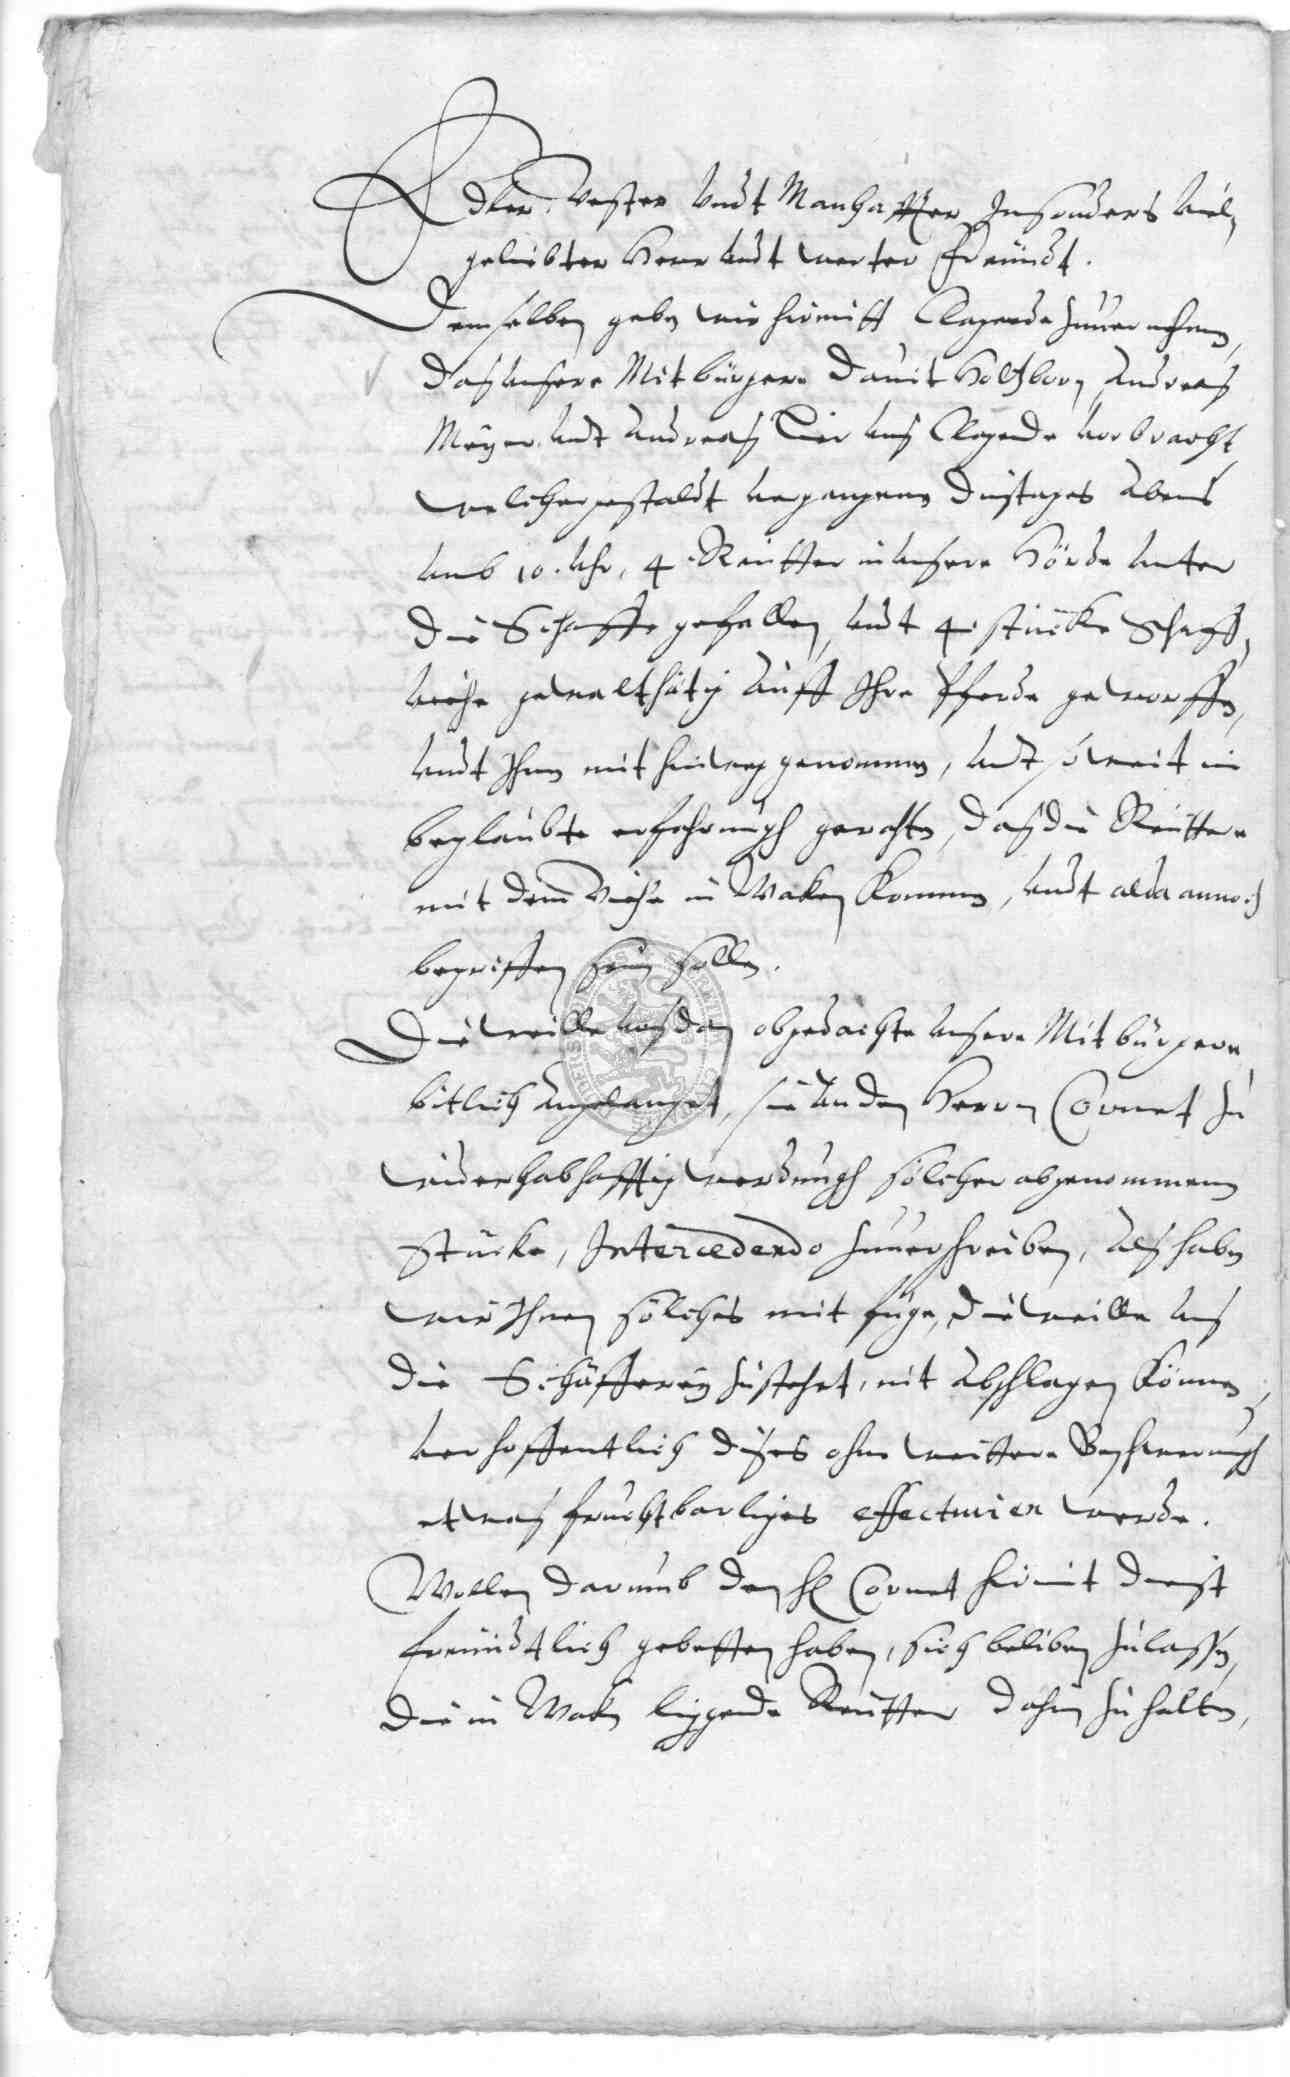 Edler, Vester undt Manhaffter, Insonders viel
geliebter Herr undt werter Freündt.
Demselben geben wir hirmitt Clagende zuuernehmen,
daß unsere Mitbürgere Dauit Holtzborn, Andreas
Meÿer, undt Andreas uns Clagende vorbracht,
welchergestaldt vergangenen Dinstages Abens
umb 10. uhr, 4. Reutter in unsere Hörde unter
die Schaffe gefallen, undt 4. stücke Schaff-
viehe gewalthätig auff Ihre Pferde geworffen,
undt Ihnen mit hinweg genommen, undt so weit in
beglaubte erfahrungh gerathen, daß die Reuttere
mit dem Viehe in Waken kommen, undt alda annoch
begriffen sein sollen.
Dieweille unß dan obgedachte unsere Mitbürgere
bitlich angelanget, sie an den Herrn Cornet zu
widerhabhafftig werdungh solcher abgenommenen
Stücke, Intercedendo zuuerschreiben, Alß haben
wir Ihnen solches mit fuge, dieweille uns
die Schäfferey zustehet, nit abschlagen können,
verhoffentlich dises ohne weittere Beschwerungh
etwas fruchtbarliges effectuiren werde.
Wollen darumb den H Cornet hirmit dienst
freundtlich gebetten haben, sich belieben zulassen,
die in Waken liggende Reutter dahin zu halten,